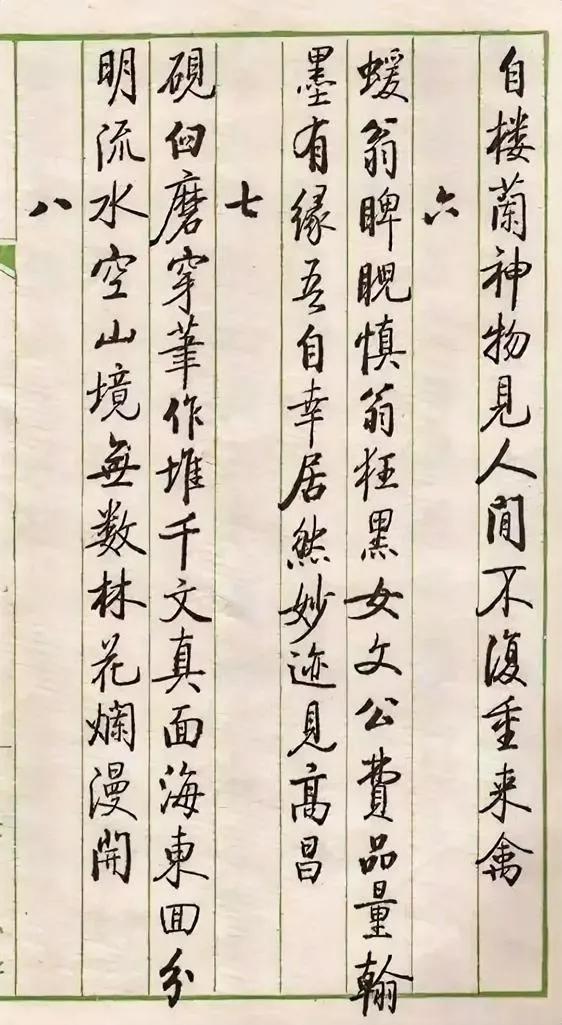 自楼蘭神物見人間不復重来禽
六
蝯翁睥睨慎翁狂黑女文公費品量翰
墨有缘吾自幸居然妙迹見高昌
七
硯臼磨穿筆作堆千文真面海東回分
明流水空山境無数林花爛漫開
八